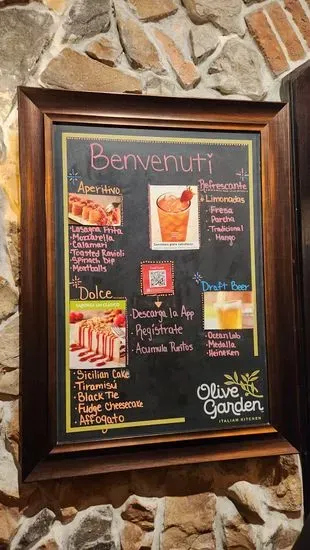 Benvenuti
Aperitivo
Lasagna Frita
Mozzarella
Calamari
Toasted Ravioli
Spinach Dip
Meatballs
Refrescante
Limonadas
Fresa
Parcha
Tradicional
Mango
Dolce
Sicilian Cake
Tiramisú
Black Tie
Fudge Cheesecake
Affogato
Descarga la App
Regístrate
Acumula Puntos
Draft Beer
Ocean Lab
Medalla
Heineken
Olive
Garden
ITALIAN KITCHEN